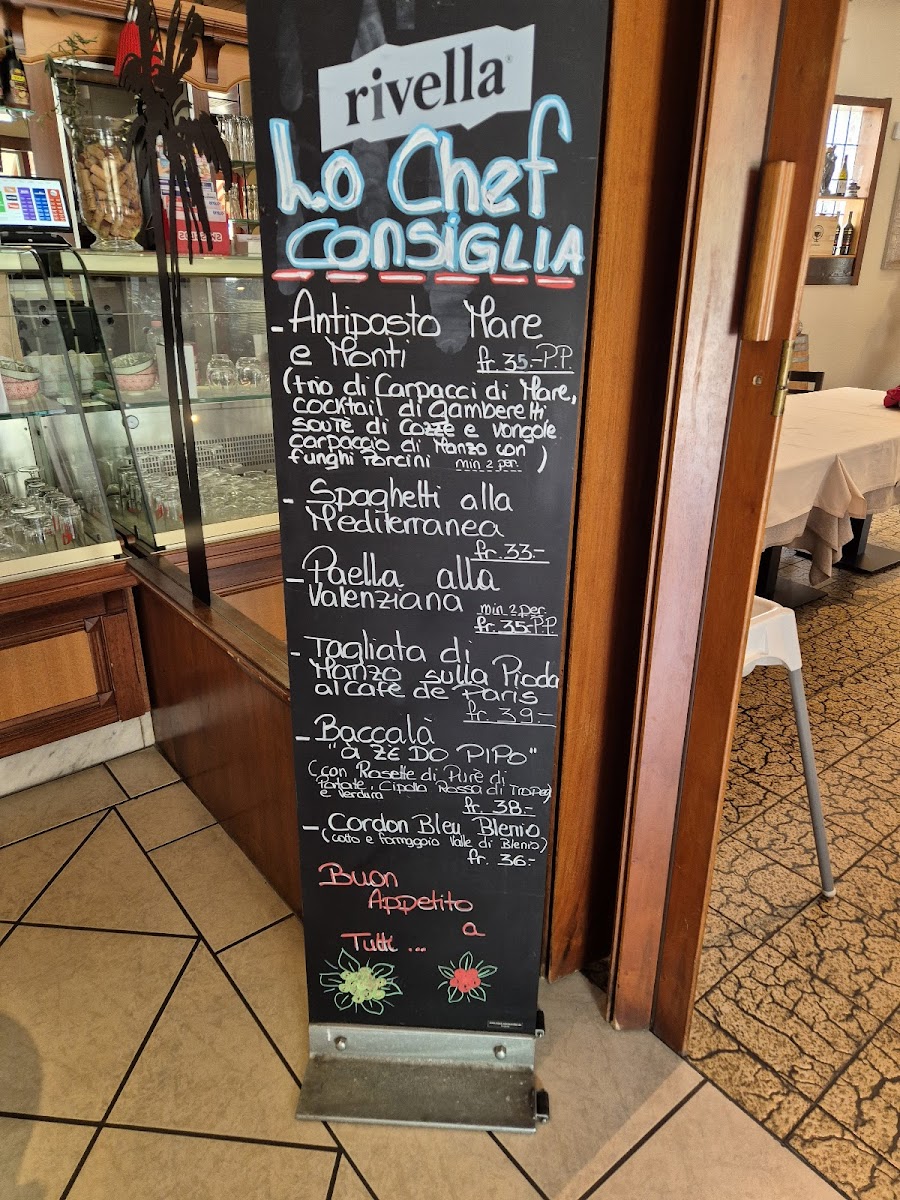 rivella
Lo Chef
CONSIGLIA
- Antipasto Mare
e Monti fr. 35.- P.P.
(trio di Carpacci di Mare,
cocktail di gamberetti
soutè di cozze e vongole
carpaccio di Manzo con
funghi Porcini min 2 per. )
- Spaghetti alla
Mediterranea
fr. 33.-
- Paella alla
Valenziana min 2 per.
fr. 35.- P.P.
- Tagliata di
Manzo sulla Pioda
al cafè de Paris
fr. 39.-
- Baccalà
"a ZE DO PIPO"
(con Rosette di Purè di
Patate, Cipolla Rossa di Tropea)
e verdura
fr. 38.-
- Cordon Bleu Blenio
(cotto e formaggio Valle di Blenio)
fr. 36.-
Buon
Appetito
a
Tutti ...